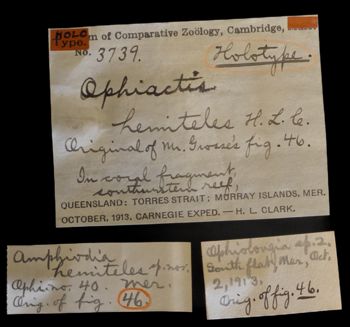 HOLO
Type.
m of Comparative Zoölogy, Cambridge,
No. 3739. Holotype.
Ophiactis
hemiteles H. L. C.
Original of Mr. Grosse's fig. 46.
In coral fragment,
southwestern reef,
QUEENSLAND: TORRES STRAIT; MURRAY ISLANDS, MER.
OCTOBER, 1913. CARNEGIE EXPED. — H. L. CLARK.
Amphiodia
hemiteles sp. nov.
Ophi. no. 40. Mer.
Orig. of fig. 46.
sp. 2.
South flat, Mer, Oct.
2, 1913.
Orig. of fig. 46.